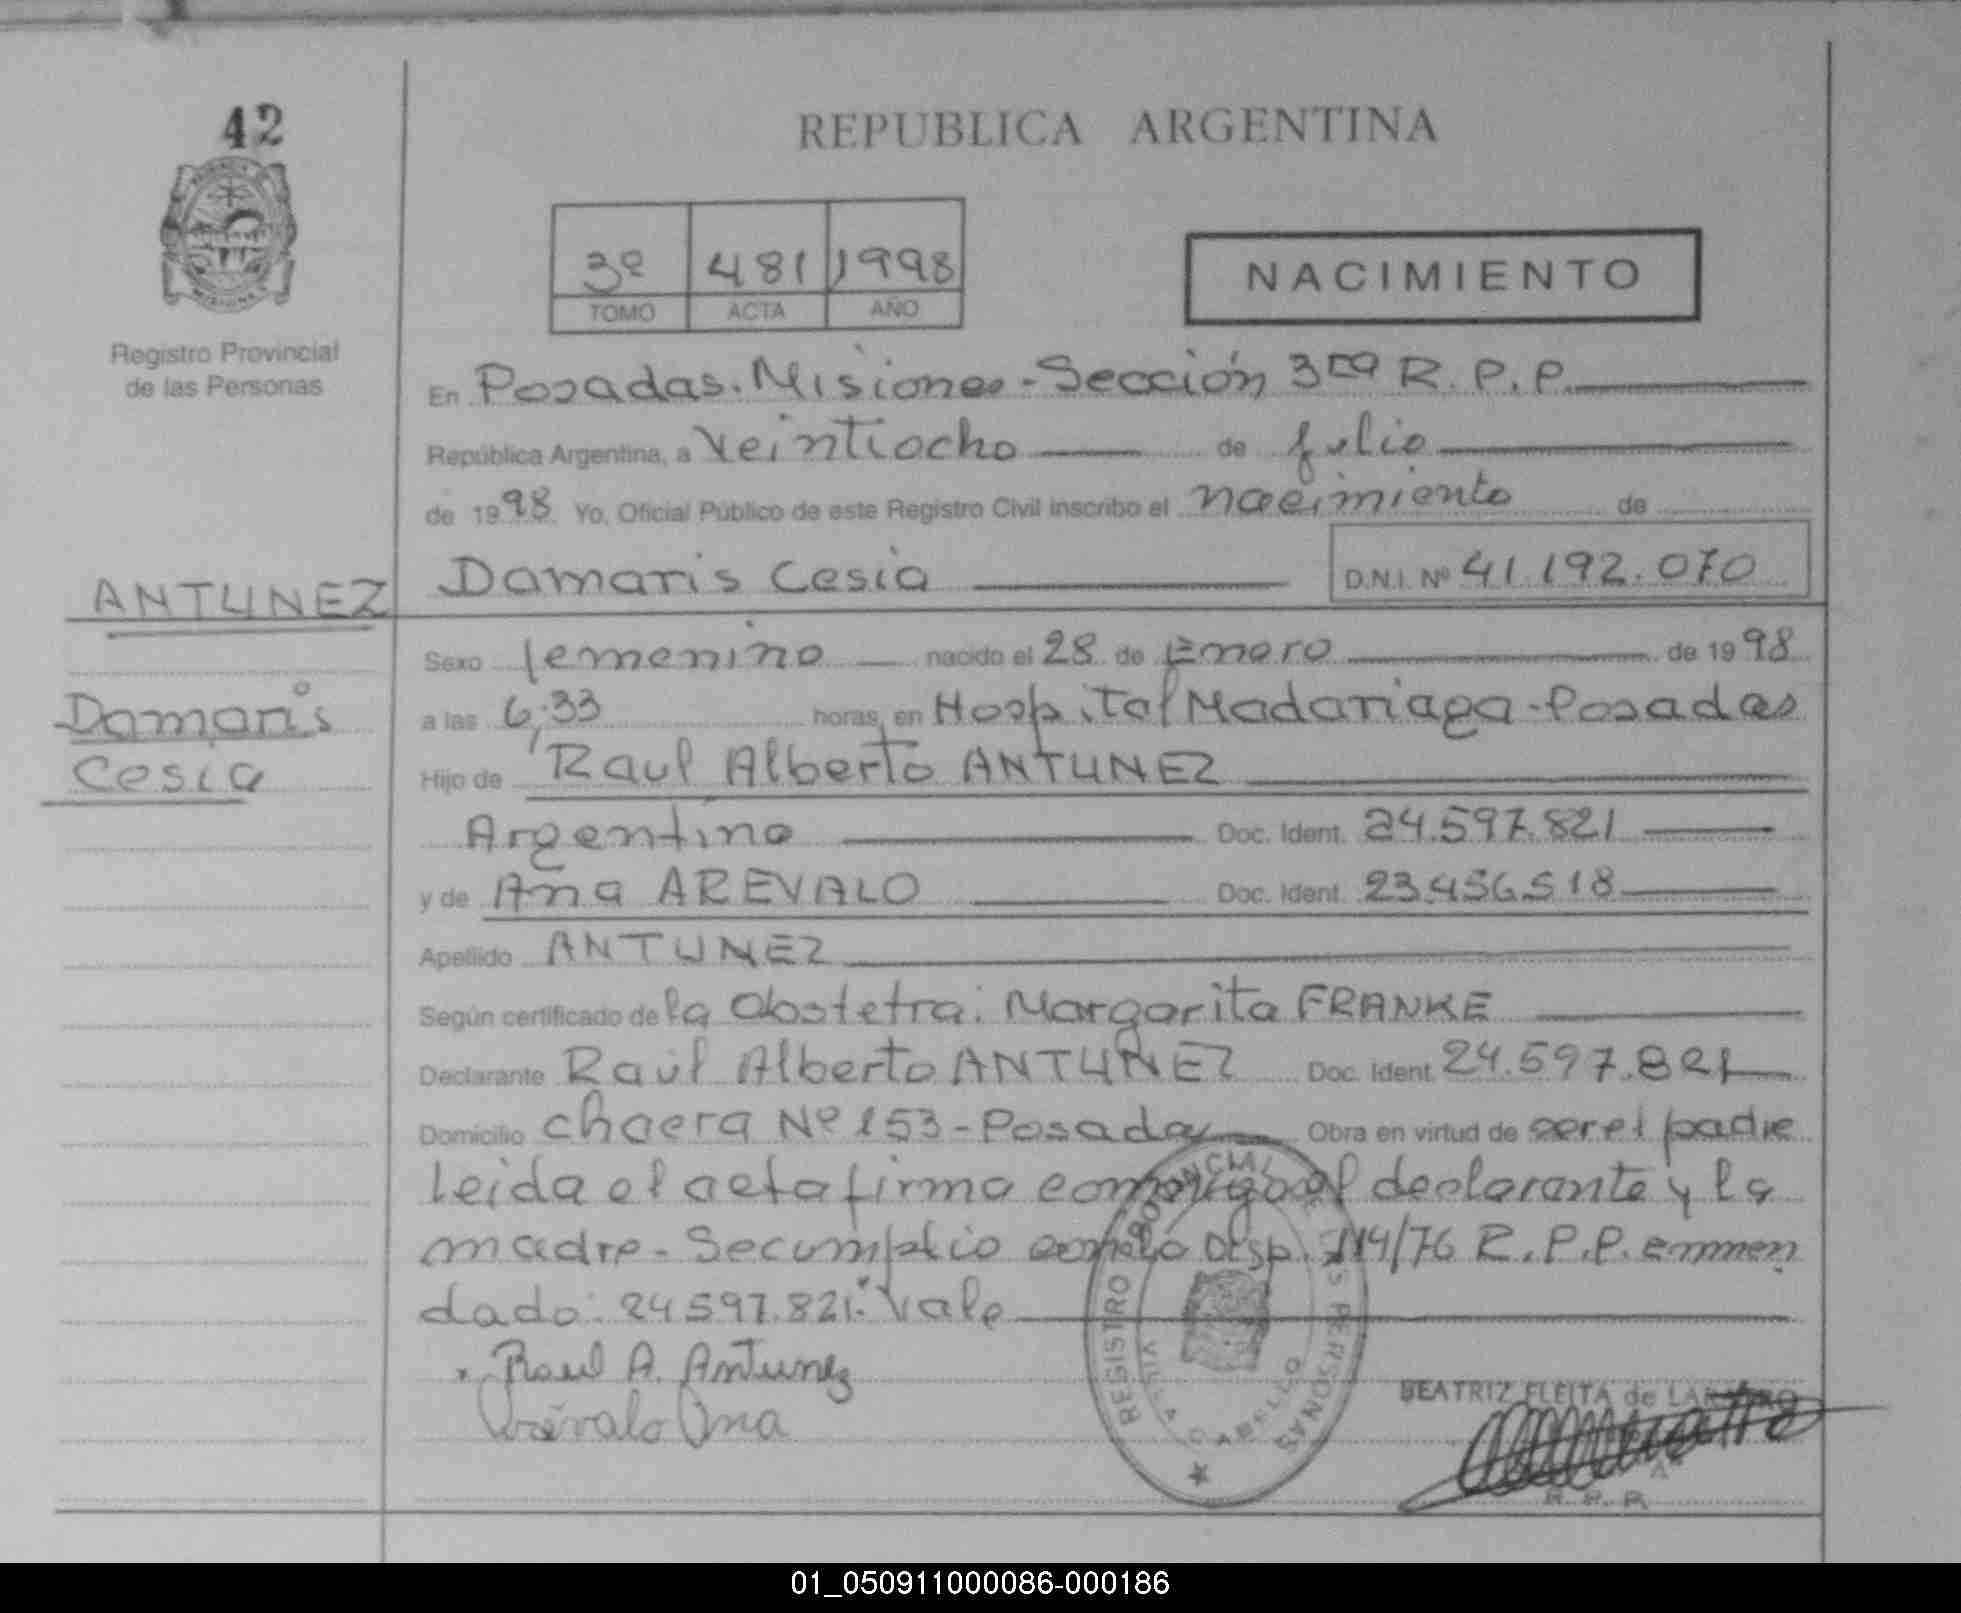 42
REPUBLICA ARGENTINA
3º 481 1998
TOMO ACTA AÑO
NACIMIENTO
Registro Provincial
de las Personas
En Posadas. Misiones - Sección 3ra R. P. P.
República Argentina, a Veintiocho de Julio
de 1998 Yo, Oficial Público de este Registro Civil inscribo el nacimiento de
ANTUNEZ
Damaris Cesia D.N.I. Nº 41.192.070
Damaris
Cesia
Sexo femenino nacido el 28 de Enero de 1998
a las 6,33 horas, en Hospital Madariaga - Posadas
Hijo de Raul Alberto ANTUNEZ
Argentino Doc. Ident. 24.597.821
y de Ana AREVALO Doc. Ident. 23.456.518
Apellido ANTUNEZ
Según certificado de la Obstetra: Margarita FRANKE
Declarante Raúl Alberto ANTUNEZ Doc. Ident. 24.597.821
Domicilio chacra Nº 153 - Posadas Obra en virtud de ser el padre
Leida el acta firma conmigo el declarante y la
madre - Se cumplio con la Disp. 114/76 R. P. P. enmen
dado: 24597.821: Vale
Raul A. Antunez
Arévalo Ana
REGISTRO PROVINCIAL DE LAS PERSONAS
VILLA CABELLO
BEATRIZ FLEITA de
R. P. P.
01_050911000086-000186